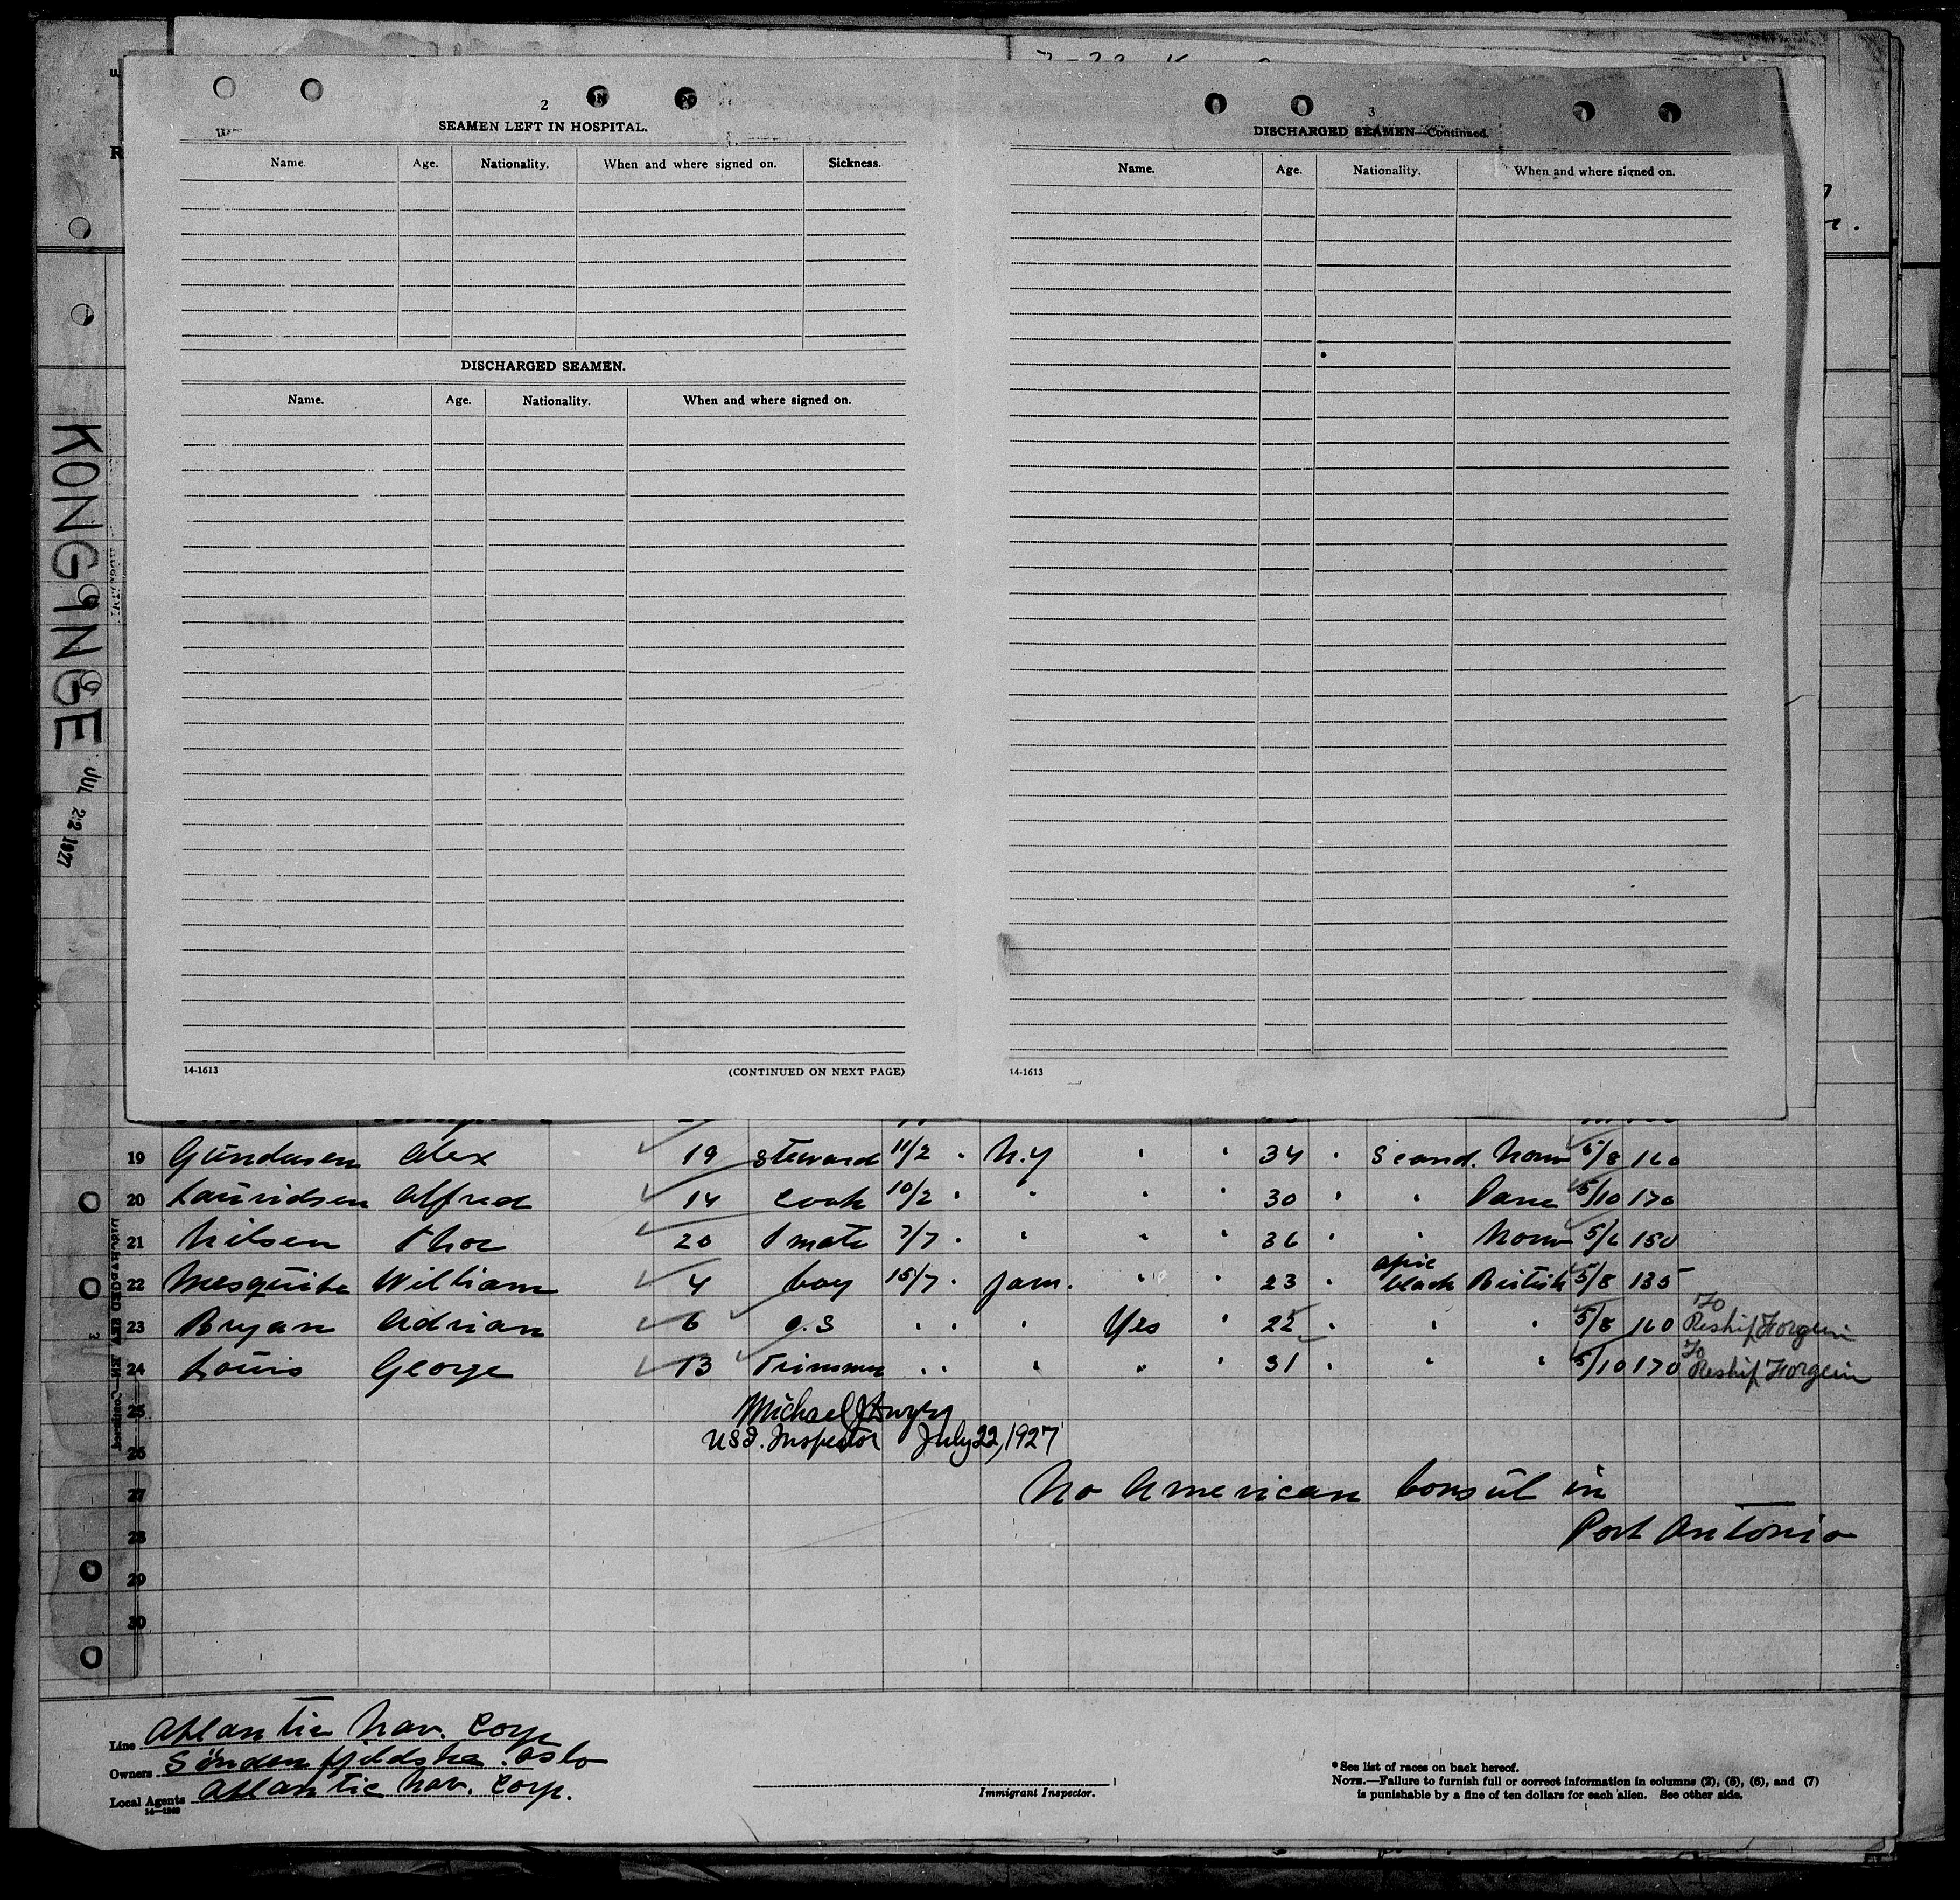 2
SEAMEN LEFT IN HOSPITAL.
Name. Age. Nationality. When and where signed on. Sickness.
DISCHARGED SEAMEN.
Name. Age. Nationality. When and where signed on.
14-1613 (CONTINUED ON NEXT PAGE)
3
DISCHARGED SEAMEN—Continued.
Name. Age. Nationality. When and where signed on.
14-1613
KONG INGE
JUL 22 1927
19 Gundusen Alex 19 steward 11/2 " N.Y " " 34 " Scand. Norw 5/8 160
20 Lauridsen Alfred 14 cook 10/2 " " " " 30 " " Dane 5/10 170
21 Nilsen Thor 20 1 mate 7/7 " " " " 36 " " Norw 5/6 150
22 Mesquita William 4 boy 15/7 " Jam. " " 23 " afric black British 5/8 135
23 Bryan Adrian 6 O.S " " " Yes " 22 " " " 5/8 160 To Reship Forgein
24 Louis George 13 Trimmer " " " " " 31 " " " 5/10 170 To Reship Forgein
25 Michael J Dwyer
26 U S I. Inspector July 22, 1927
27 No American Consul in
28 Port Antonio
29
30
Line Atlantic Nav. Corp
Owners Söndenfjeldske. Oslo
Local Agents Atlantic Nav. Corp.
14—1240
Immigrant Inspector.
* See list of races on back hereof.
NOTE.—Failure to furnish full or correct information in columns (2), (5), (6), and (7)
is punishable by a fine of ten dollars for each alien. See other side.